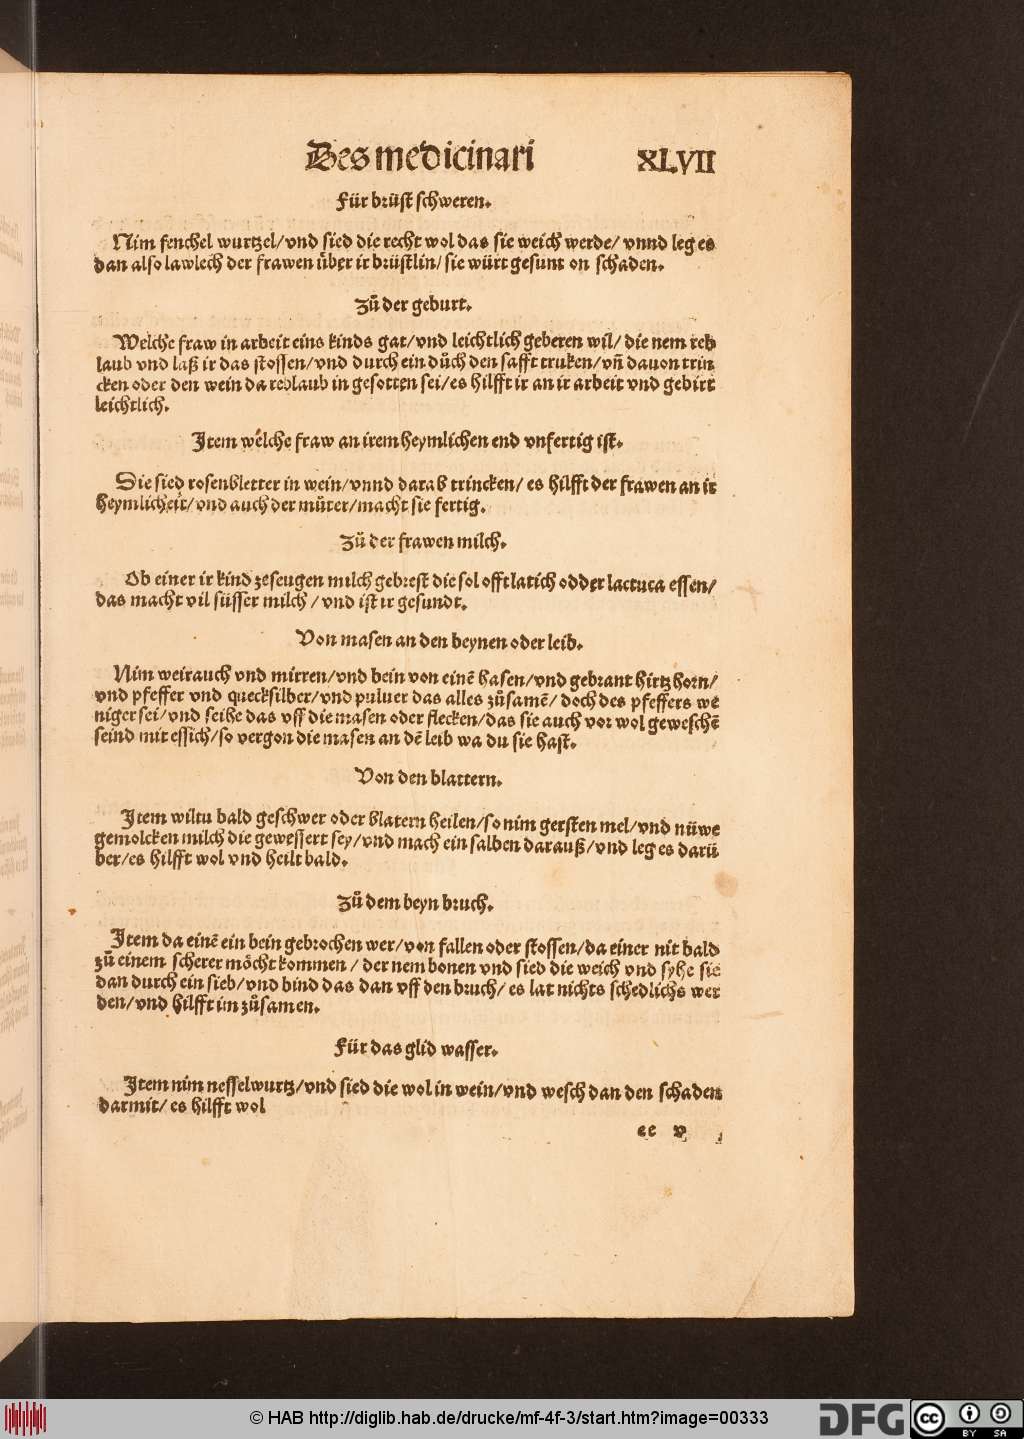 Des medicinari XLVII
Für brüst schweren.
Nim fenchel wurtzel/vnd sied die recht wol das sie weich werde/ vnnd leg es
dan also lawlech der frawen über ir brüstlin/sie würt gesunt on schaden.
Zů der geburt.
Welche fraw in arbeit eins kinds gat/vnd leichtlich geberen wil/ die nem reb
laub vnd laß ir das stossen/vnd durch ein důch den safft truken/vñ dauon trin
cken oder den wein da reblaub in gesotten sei/es hilfft ir an ir arbeit vnd gebirt
leichtlich.
Item welche fraw an irem heymlichen end vnfertig ist.
Die sied rosenbletter in wein/vnnd darab trincken/ es hilfft der frawen an ir
heymlicheit/vnd auch der můter/macht sie fertig.
Zů der frawen milch.
Ob einer ir kind zeseugen milch gebrest die sol offt latich odder lactuca essen/
das macht vil süsser milch /vnd ist ir gesundt.
Von masen an den beynen oder leib.
Nim weirauch vnd mirren/vnd bein von einē hasen/vnd gebrant hirtz horn/
vnd pfeffer vnd quecksilber/vnd puluer das alles zůsamē/ doch des pfeffers we
niger sei/vnd seihe das vff die masen oder flecken/das sie auch vor wol geweschē
seind mit essich/so vergon die masen an dē leib wa du sie hast.
Von den blattern.
Item wiltu bald geschwer oder blatern heilen/so nim gersten mel/vnd nüwe
gemolcken milch die gewessert sey/vnd mach ein salben darauß/vnd leg es darü
ber/es hilfft wol vnd heilt bald.
Zů dem beyn bruch.
Item da einē ein bein gebrochen wer/von fallen oder stossen/da einer nit bald
zů einem scherer möcht kommen / der nem bonen vnd sied die weich vnd syhe sie
dan durch ein sieb/vnd bind das dan vff den bruch/ es lat nichts schedlichs wer
den/vnd hilfft im zůsamen.
Für das glid wasser.
Item nim nesselwurtz/vnd sied die wol in wein/vnd wesch dan den schaden
darmit/ es hilfft wol
ee v
© HAB http://diglib.hab.de/drucke/mf-4f-3/start.htm?image=00333
DFG
cc BY SA